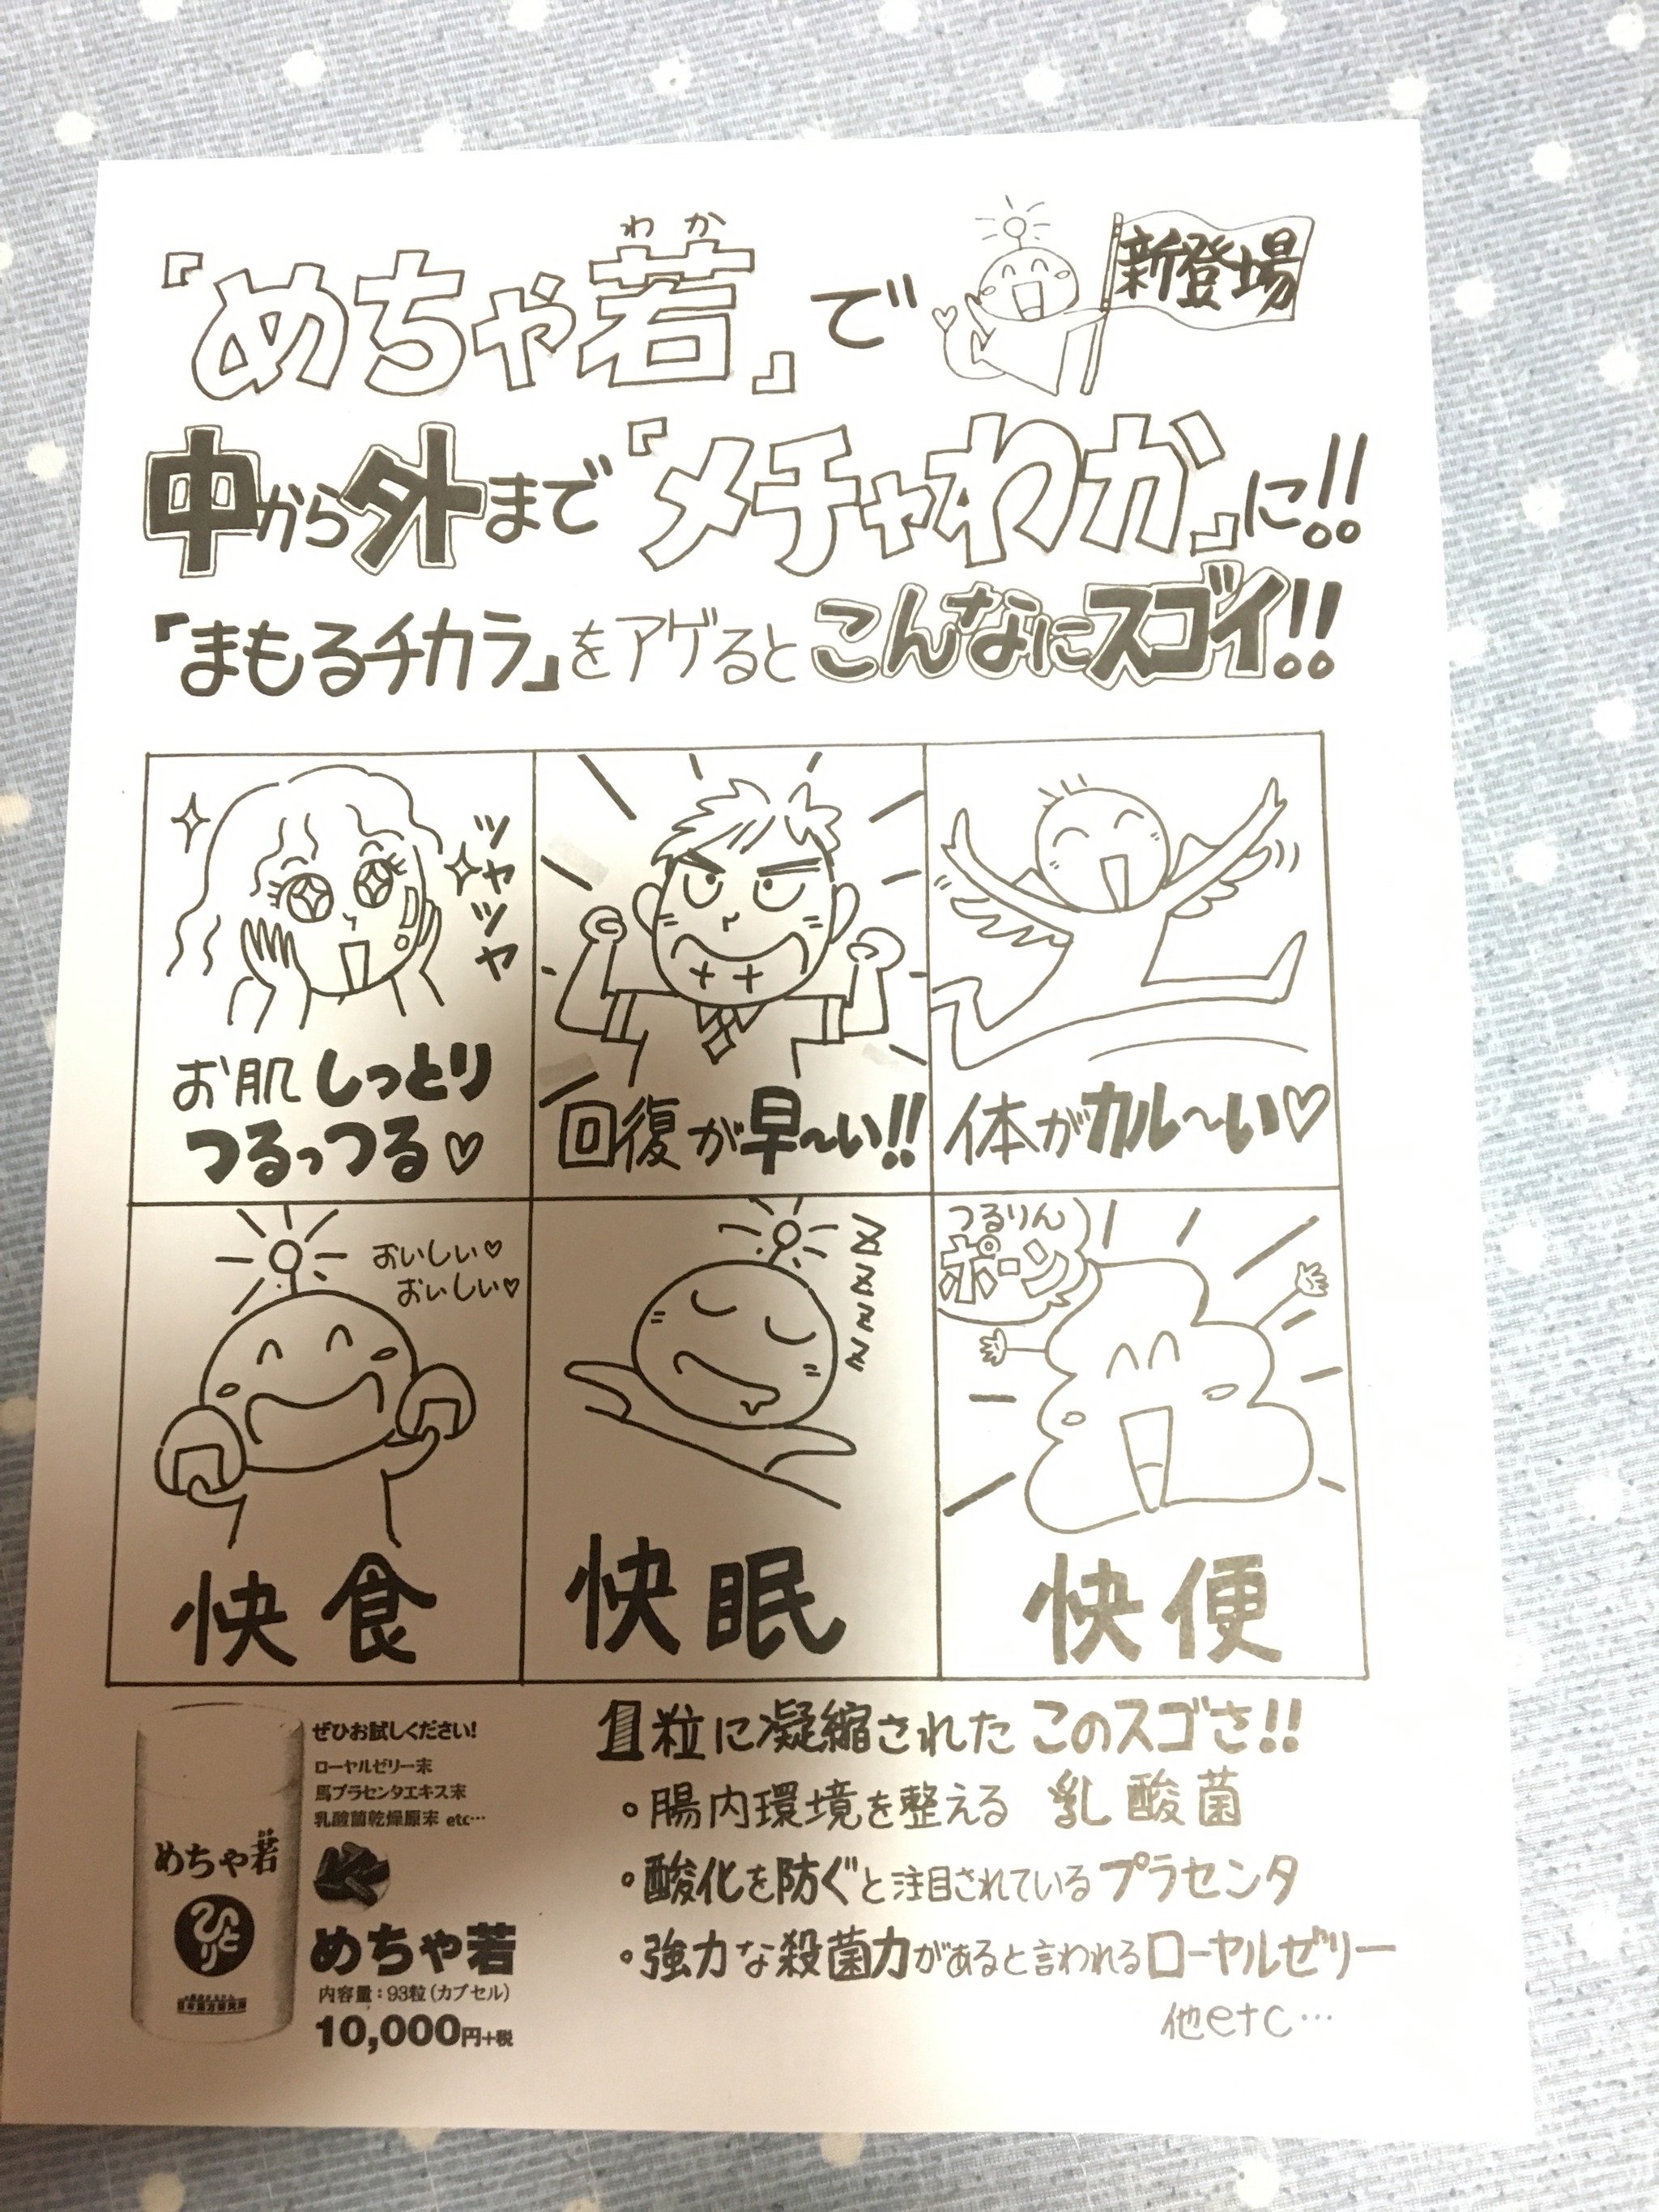 『めちゃ若』で
わか
新登場
中から外まで『メチャわか』に!!
「まもるチカラ」をアゲるとこんなにスゴイ!!
ツヤツヤ
お肌しっとり
つるっつる♡
回復が早〜い!!
体がカル〜い♡
おいしい♡
おいしい♡
快食
快眠
つるりん
ポーン
快便
ぜひお試しください!
ローヤルゼリー末
馬プラセンタエキス末
乳酸菌乾燥原末 etc…
めちゃ若
ひとり
めちゃ若
内容量:93粒(カプセル)
10,000円+税
1粒に凝縮された このスゴさ!!
・腸内環境を整える 乳酸菌
・酸化を防ぐと注目されているプラセンタ
・強力な殺菌力があると言われるローヤルゼリー
他etc…